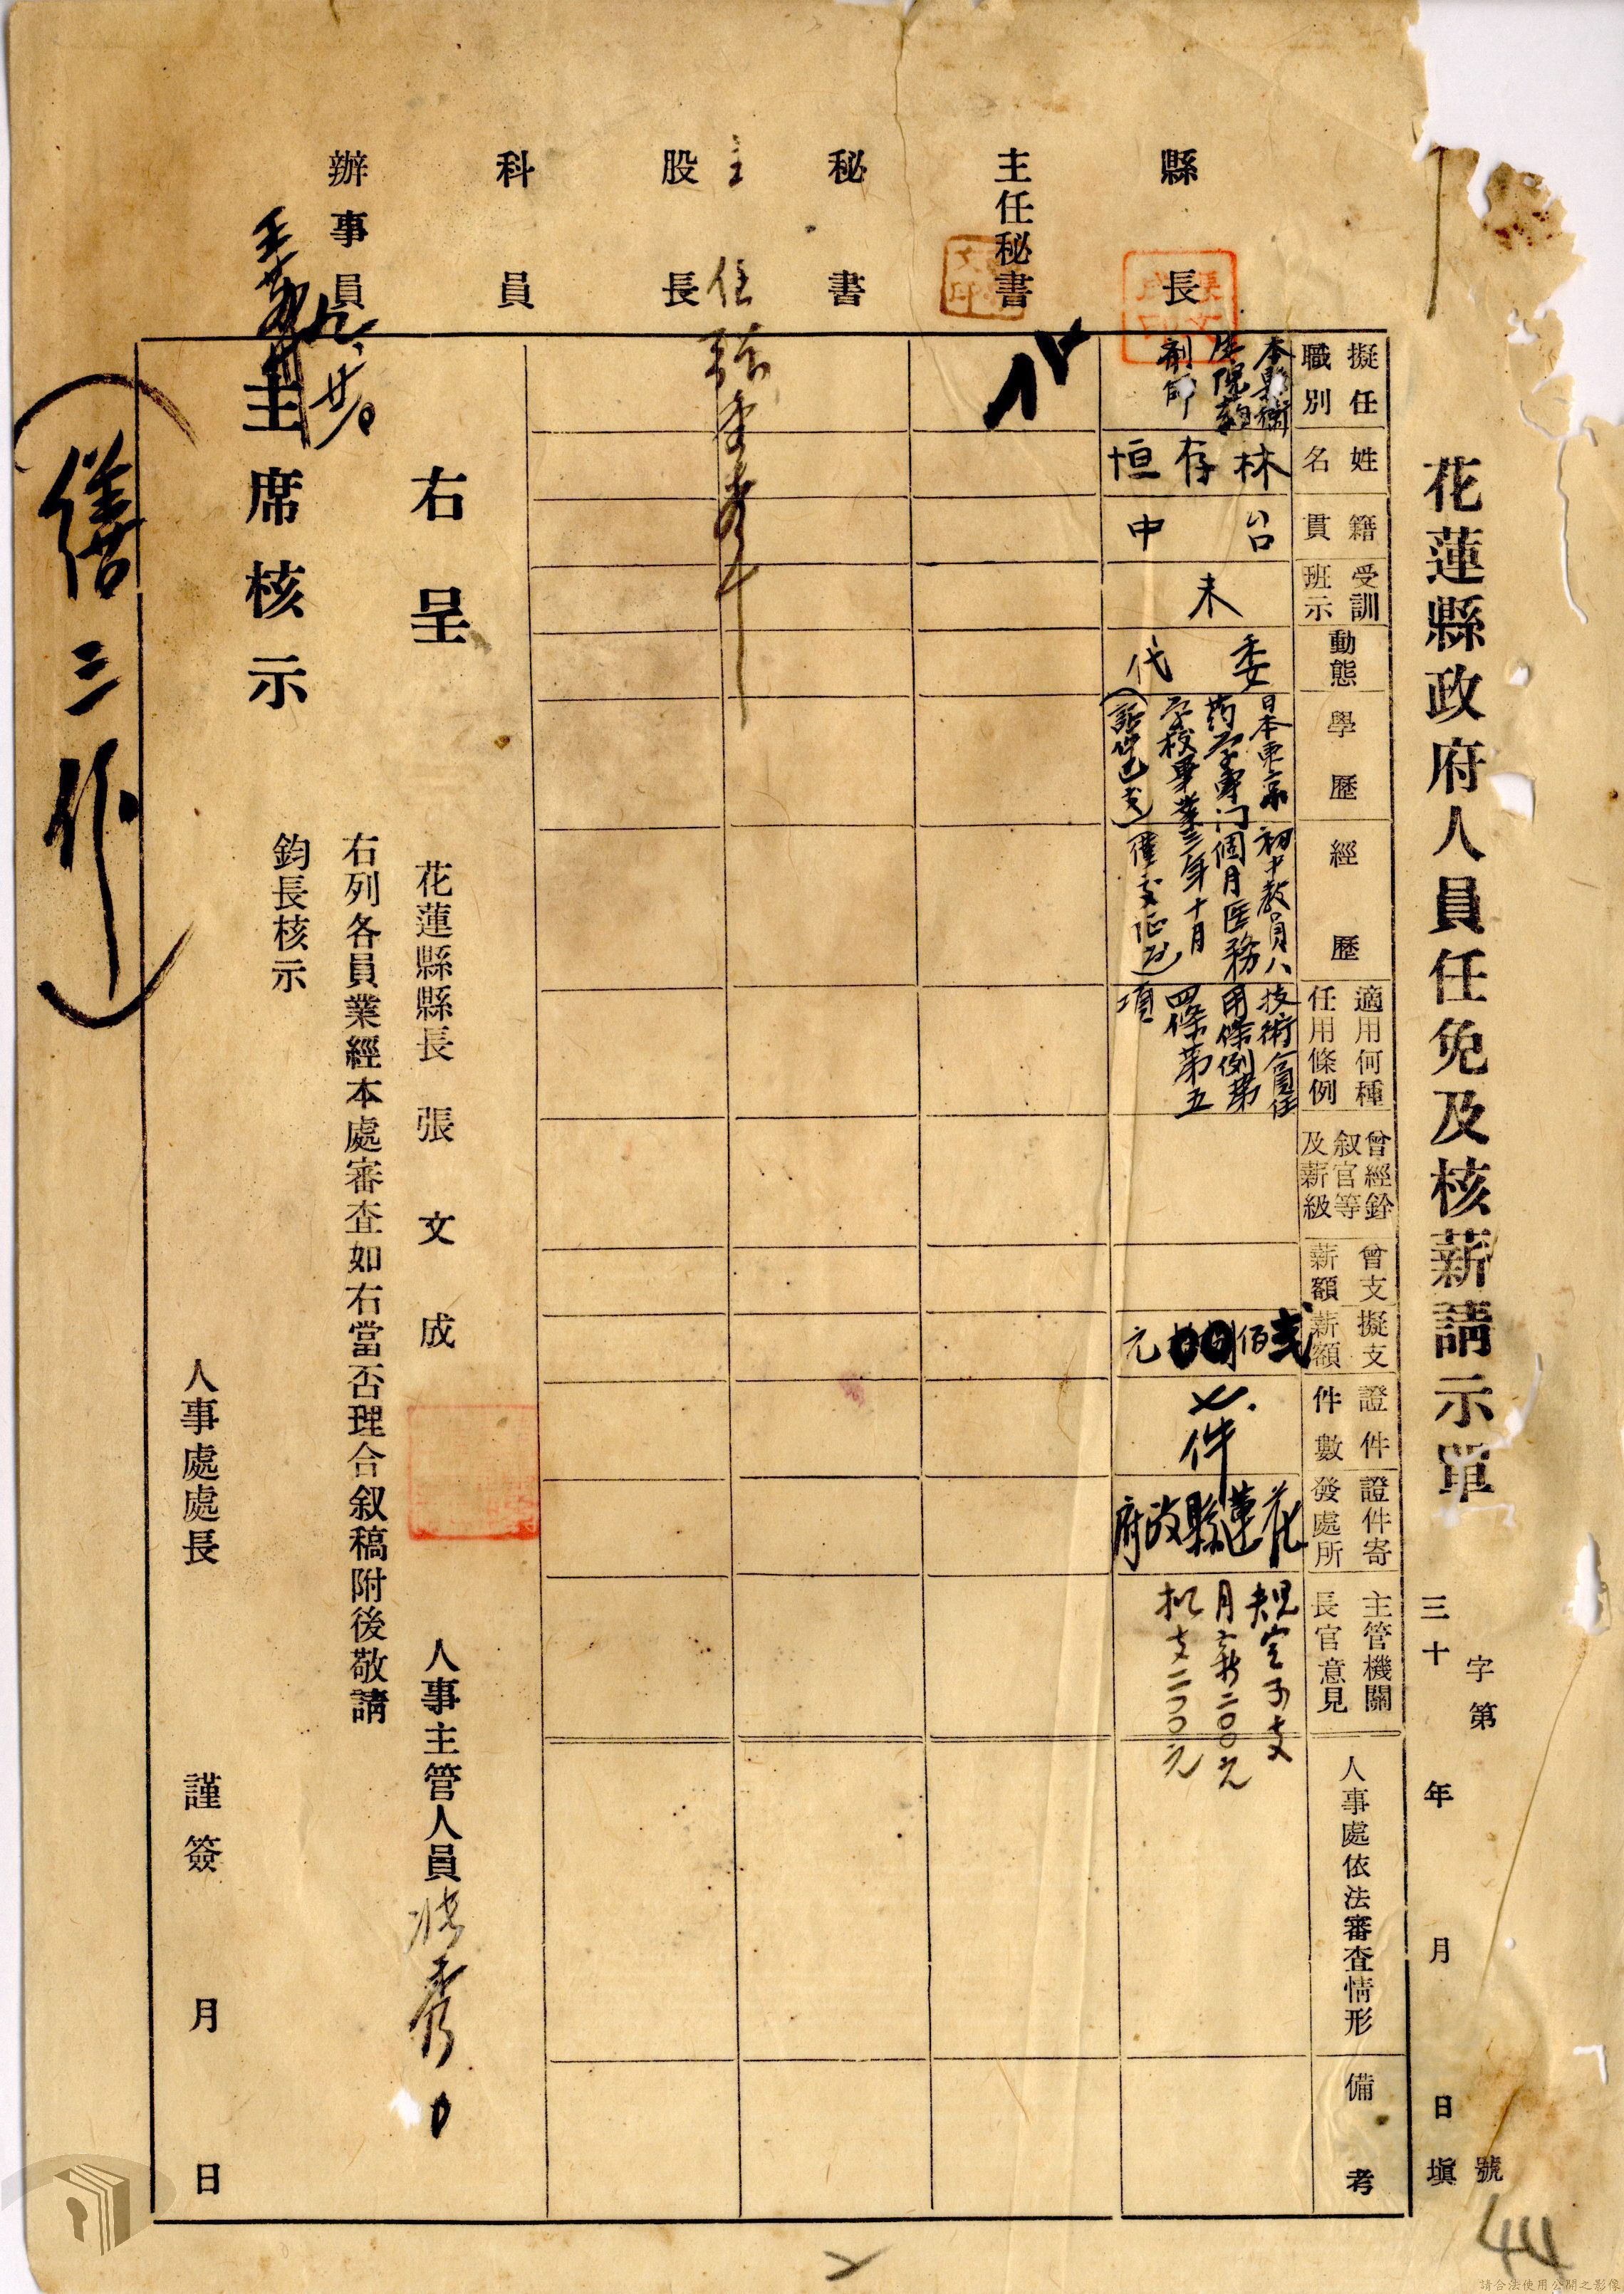 花蓮縣政府人員任免及核薪請示單
字第 號
三十 年 月 日填
縣長
主任秘書
秘書
主任
股長
科員
辦事員
擬任職別
本縣衛生院藥劑師
姓名
林存恒
籍貫
台中
受訓班示
未
動態
委代
學歷
日本東京药学專门学校畢業
經歷
初中教員八個月医務三年十月
適用何種任用條例
技術人員任用條例第四條第五項
曾經銓敍官等及薪級
曾支薪額
擬支薪額
弍佰 元
證件件數
七件
證件寄發處所
花蓮縣政府
主管機關長官意見
規定予支月薪二〇〇元
拟支二〇〇元
人事處依法審查情形
備考
右呈
花蓮縣縣長 張文成
人事主管人員
主席核示
右列各員業經本處審查如右當否理合叙稿附後敬請
鈞長核示
人事處處長 謹簽 月 日
44
請合法使用公開之影像